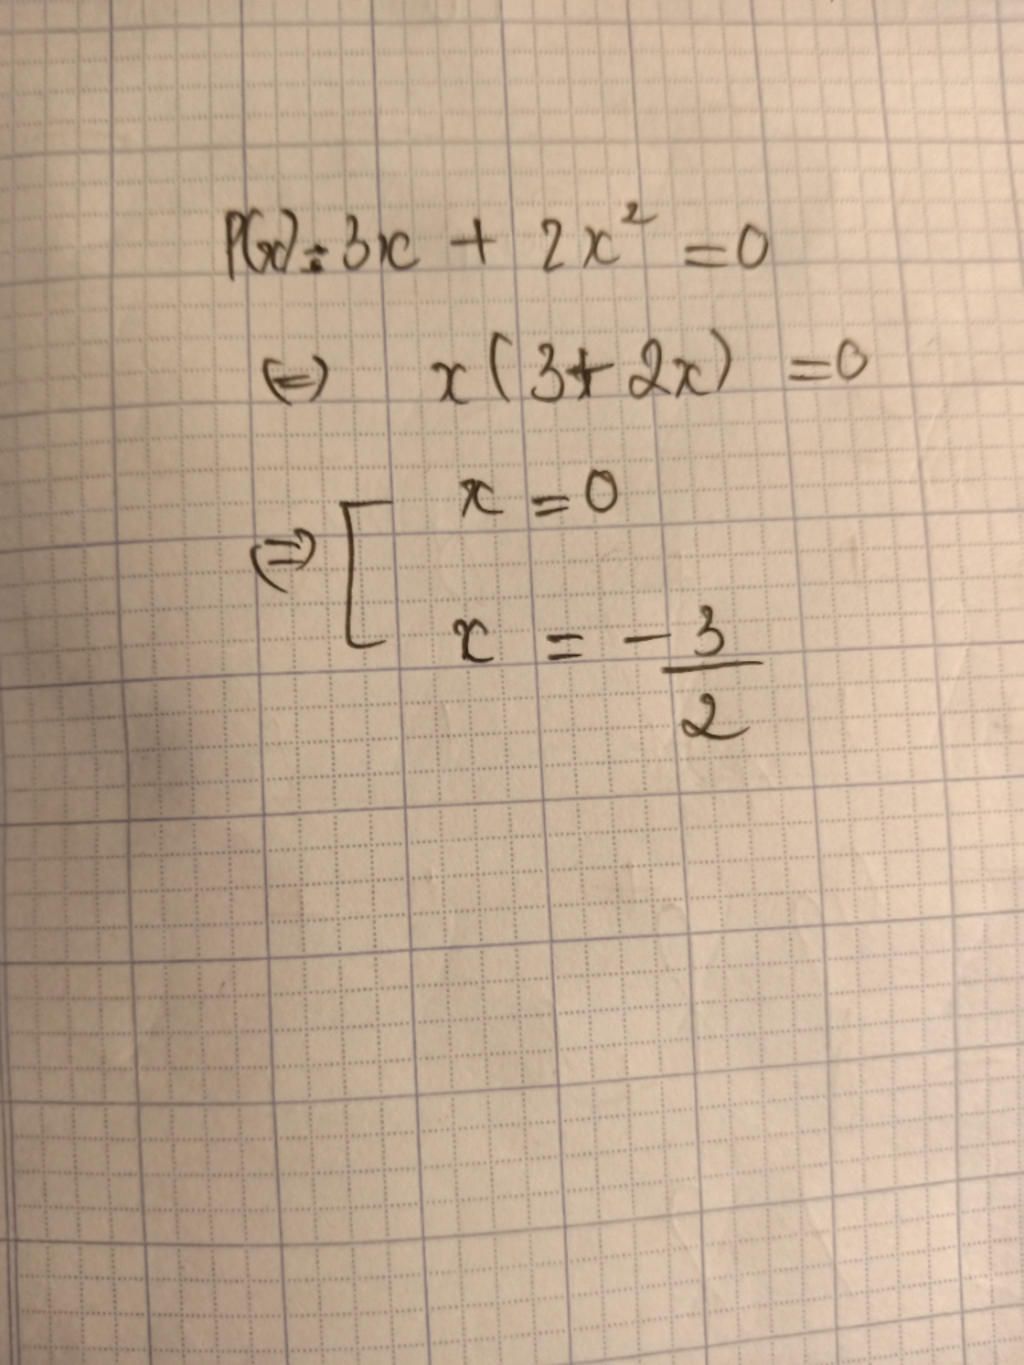 P(x) = 3x + 2x² = 0
⇔ x(3+2x) = 0
⇔ [ x = 0
x = -3/2